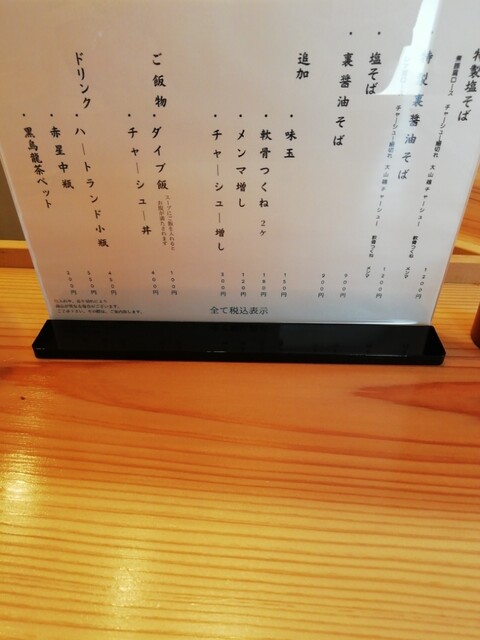 特製塩そば
チャーシュー細切れ 大山鶏チャーシュー 軟骨つくね メンマ 1200円
・特製裏醤油そば
チャーシュー細切れ 大山鶏チャーシュー 軟骨つくね メンマ 1200円
・塩そば 900円
・裏醤油そば 900円
追加
・味玉 150円
・軟骨つくね 2ヶ 160円
・メンマ増し 120円
・チャーシュー増し 300円
ご飯物
・ダイブ飯 スープにご飯を入れると お腹が満たされます 100円
・チャーシュー丼 400円
ドリンク
・ハートランド小瓶 450円
・赤星中瓶 550円
・黒烏龍茶ペット 200円
全て税込表示